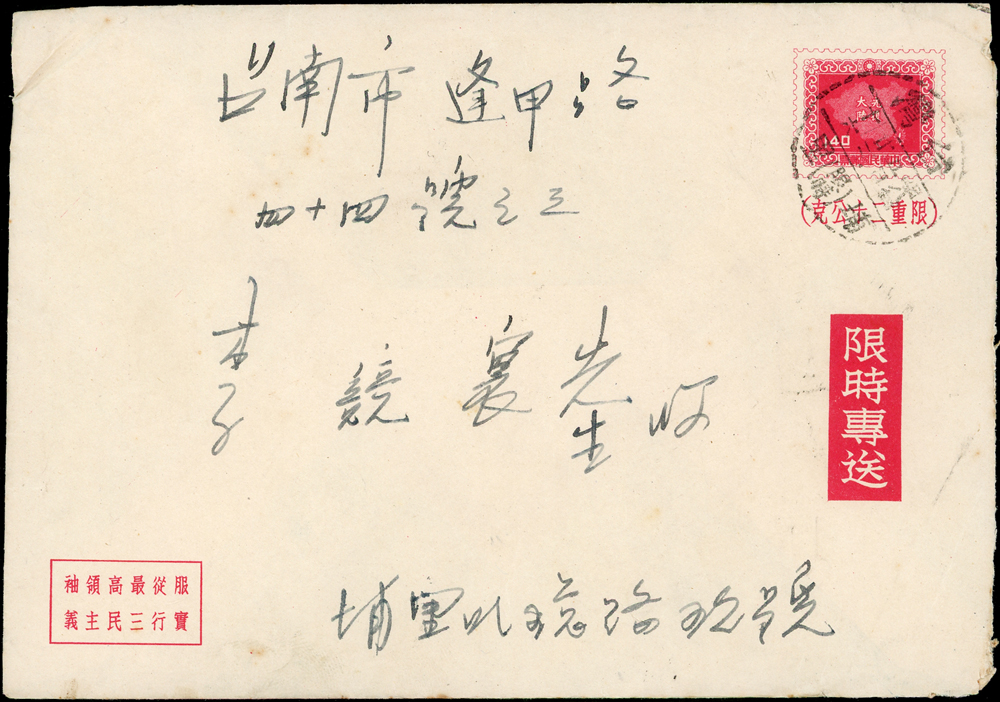 台南市逢甲路
四十四號之三
李競寰先生收
大陸
140
中華民國郵票
(限重二十公克)
限時專送
服從最高領袖
實行三民主義
埔里 路 號